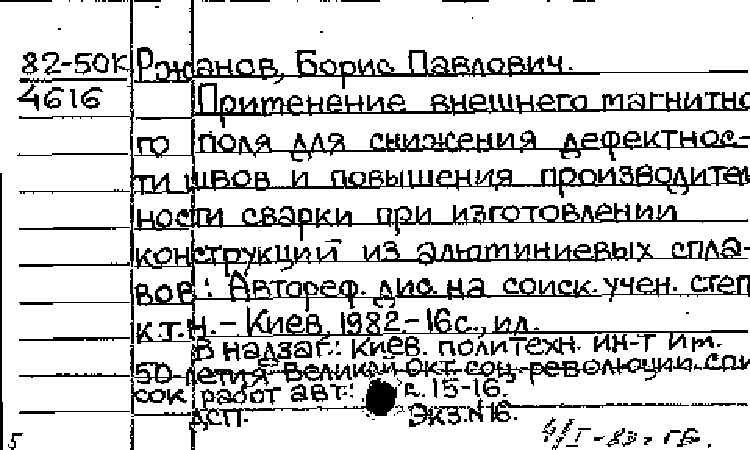 82-50К Ржанов, Борис Павлович.
4616 Применение внешнего магнитно
го поля для снижения дефектнос-
ти швов и повышения производител
ности сварки при изготовлении
конструкций из алюминиевых спла-
вов: Автореф. дис. на соиск. учен. степ
к.т.н. - Киев, 1982. - 16с., ил.
В надзаг.: Киев. политехн. ин-т им.
50-летия Великой Окт. соц. революции. Спи
сок работ авт.: с. 15-16.
ДСП. Экз. №16.
5